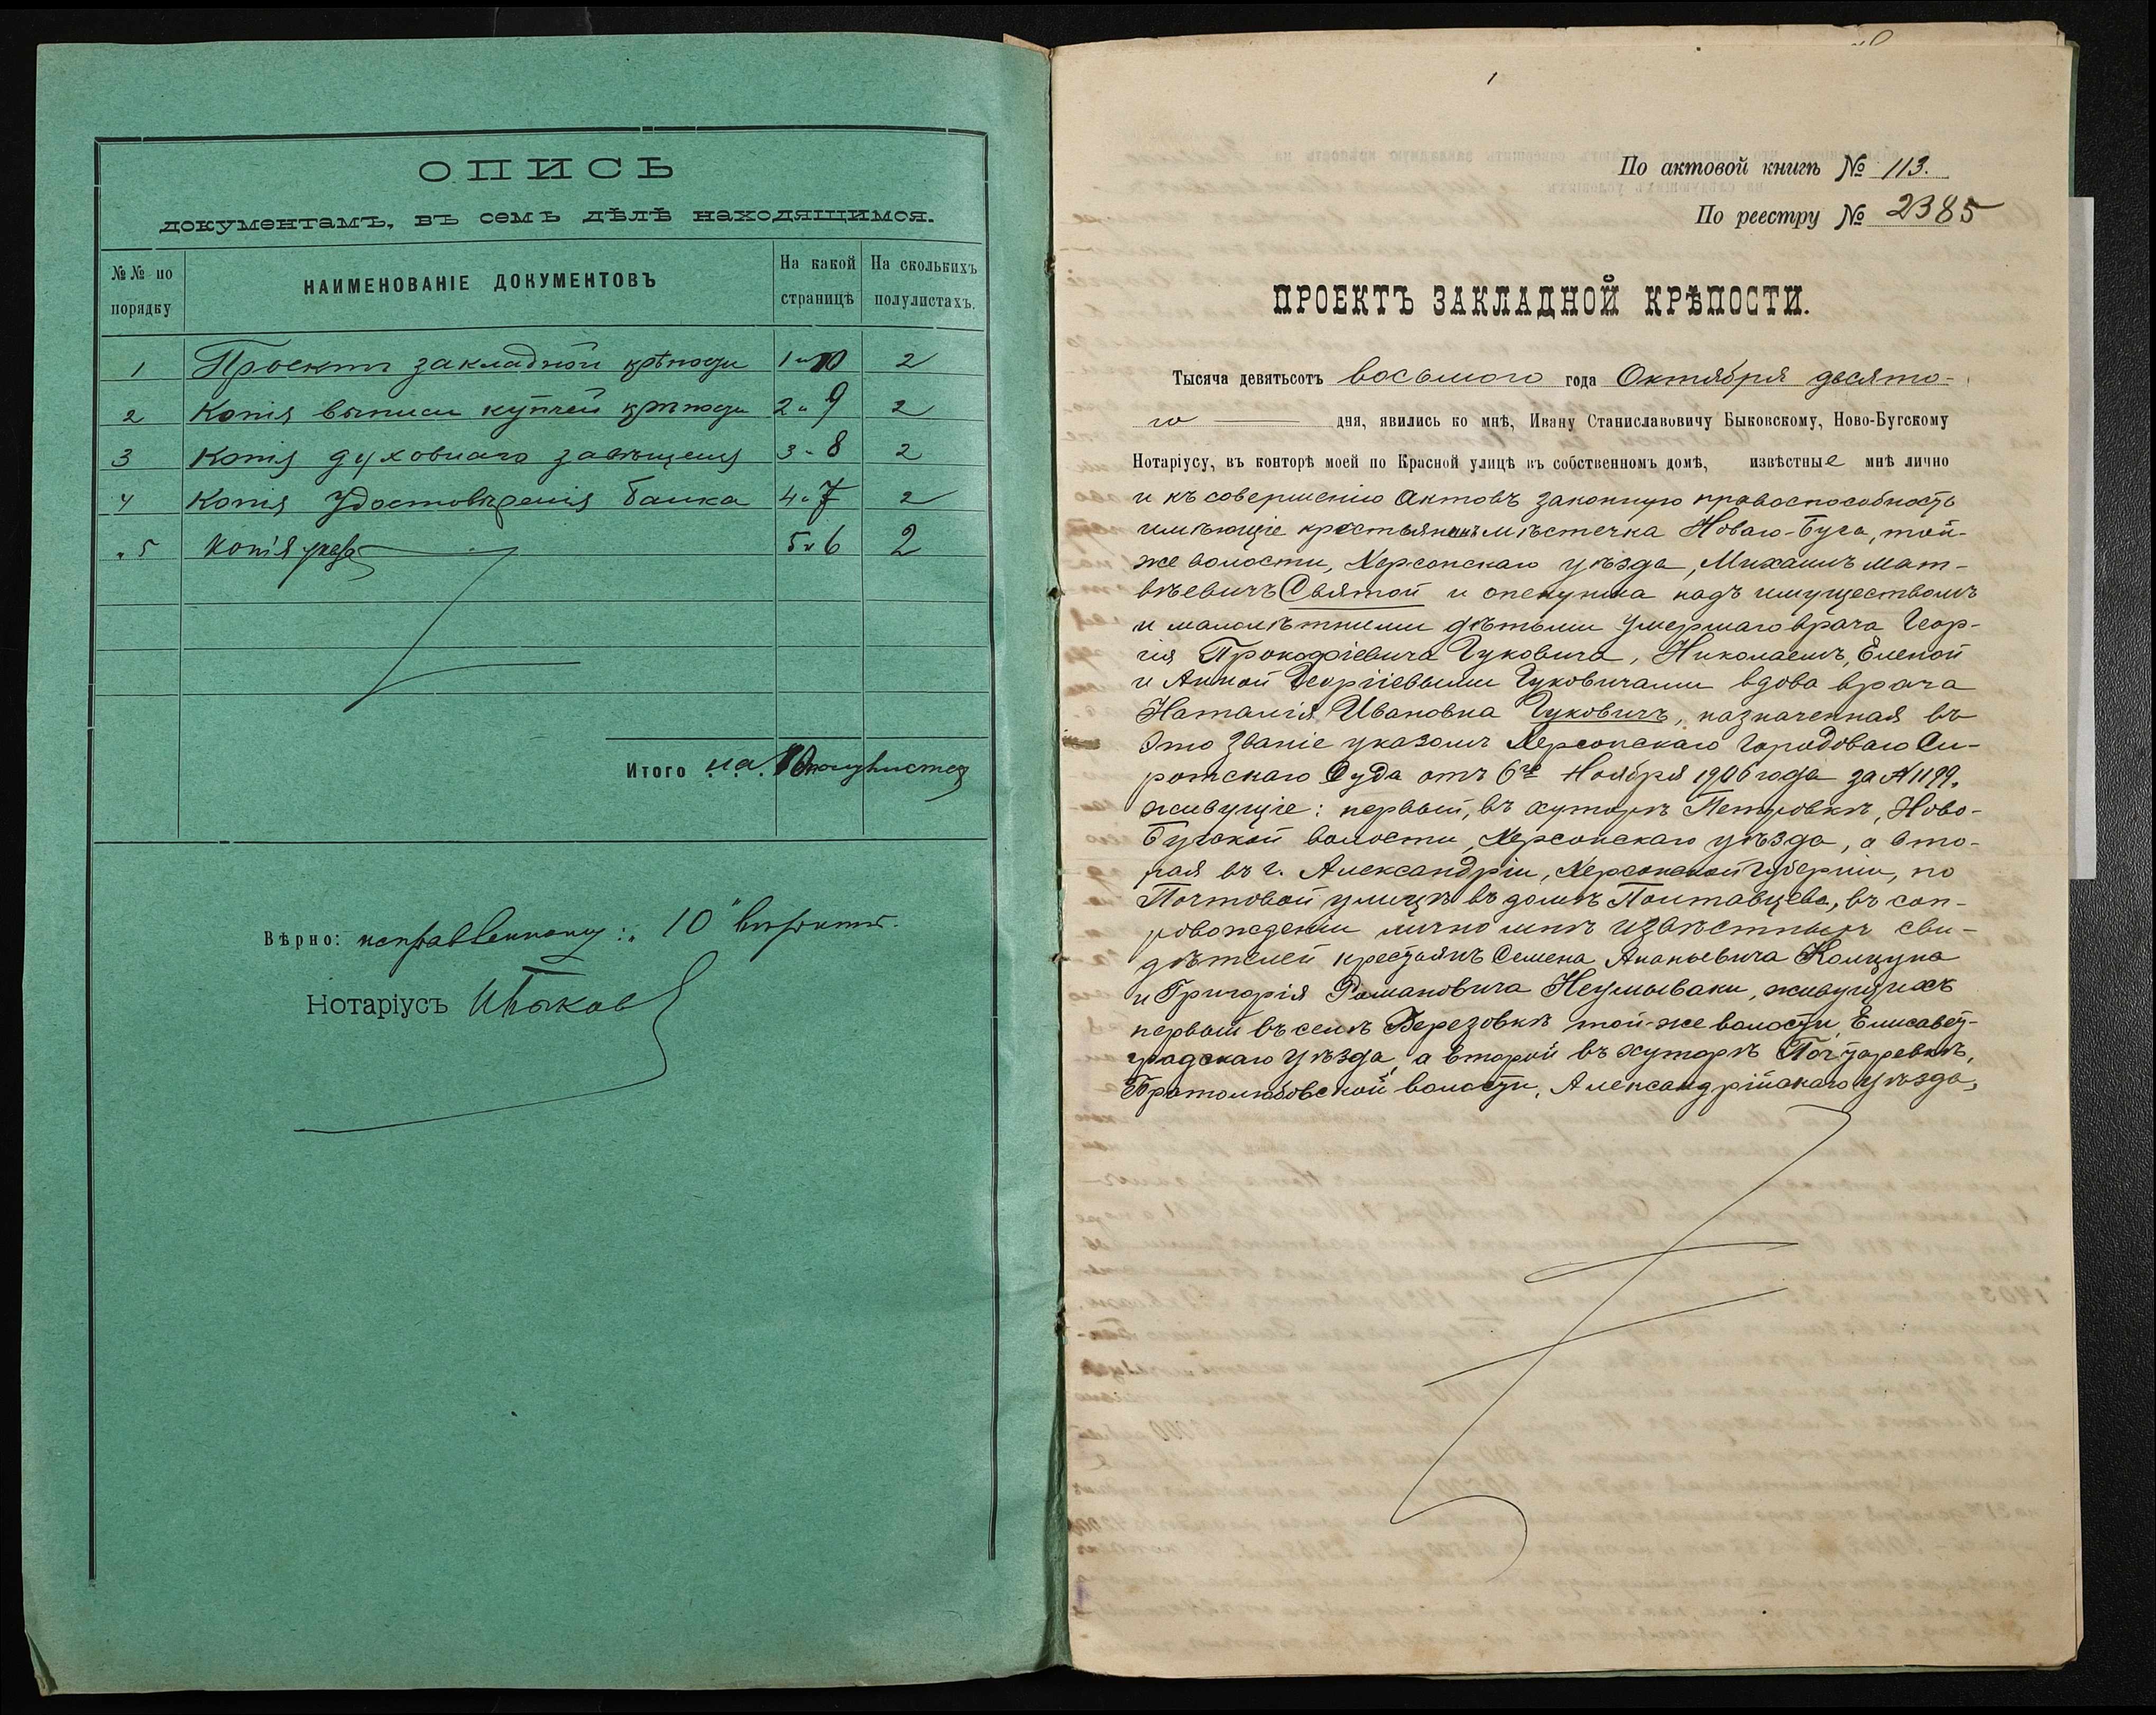 ОПИСЬ
документамъ, въ семъ дѣлѣ находящимся.
№№ по порядку
НАИМЕНОВАНІЕ ДОКУМЕНТОВЪ
На какой страницѣ
На сколькихъ полулистахъ.
1 Проектъ закладной крѣпости 1 и 10 2
2 Копія выписи купчей крѣпости 2 и 9 2
3 Копія духовнаго завѣщенія 3 и 8 2
4 Копія Удостовѣренія банка 4 и 7 2
5 Копія указа 5 и 6 2
Итого на 10 полулистах
Вѣрно: исправленному: „10" вѣрить.
Нотаріусъ ИБыков
1
По актовой книгѣ № 113.
По реестру № 2385
ПРОЕКТЪ ЗАКЛАДНОЙ КРѢПОСТИ.
Тысяча девятьсотъ восьмого года Октября десято-
го дня, явились ко мнѣ, Ивану Станиславовичу Быковскому, Ново-Бугскому
Нотаріусу, въ конторѣ моей по Красной улицѣ въ собственномъ домѣ, извѣстные мнѣ лично
и къ совершенію актовъ законную правоспособность
имѣющіе крестьянинъ мѣстечка Новаго-Буга, той-
же волости, Херсонскаго уѣзда, Михаилъ Мат-
вѣевичъ Святой и опекунша надъ имуществомъ
и малолѣтними дѣтьми умершаго врача Геор-
гія Прокофіевича Гуковича, Николаемъ, Еленой
и Анной Георгіевыми Гуковичами вдова врача
Наталія Ивановна Гуковичъ, назначенная въ
это званіе указомъ Херсонскаго Городоваго Си-
ротскаго Суда отъ 6го Ноября 1906 года за № 1199,
живущіе: первый, въ хуторѣ Петровкѣ, Ново-
Бугской волости, Херсонскаго уѣзда, а вто-
рая въ г. Александріи, Херсонской губерніи, по
Почтовой улицѣ въ домѣ Полтавцева, въ соп-
ровожденіи лично мнѣ извѣстныхъ сви-
дѣтелей крестьянъ Семена Ананьевича Колцуна
и Григорія Романовича Неумываки, живущихъ
первый въ селѣ Березовкѣ той-же волости, Елисавет-
градскаго уѣзда, а второй въ хуторѣ
Братолюбовской волости, Александрійскаго уѣзда,